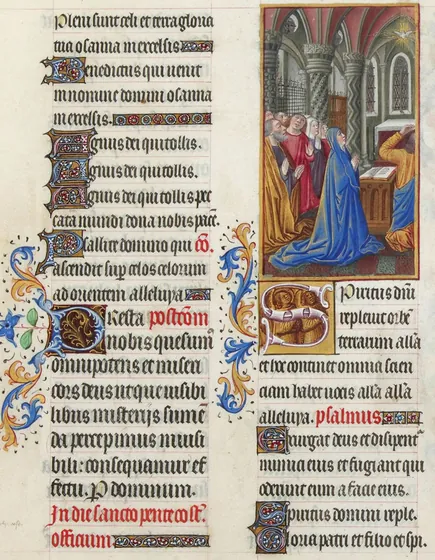 Pleni sunt celi et terra gloria
tua osanna in excelsis
Benedictus qui uenit
in nomine domini osanna
in excelsis.
Agnus dei qui tollis.
Agnus dei qui tollis.
Agnus dei qui tollis pec
cata mundi dona nobis pacē.
Psallite domino qui cō.
ascendit sup celos celorum
ad orientem alleluya
Presta postcom̄
nobis quesum̄
omnipotens et miseri
cors deus ut que uisibi
libus misterijs sumē
da percepimus inuisi
bili: consequamur ef
fectu. P dominum.
In die sancto pentecost.
officium
Spiritus dn̄i
repleuit orbē
terrarum alla
et hoc continet omnia scien
ciam habet uocis alla alla
alleluya. psalmus
Exurgat deus et dissipent᷑
inimici eius et fugiant qui
oderunt eum a facie eius.
Spiritus domini reple.
Gloria patri et filio et spi.